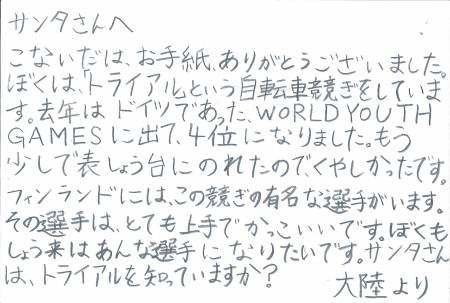 サンタさんへ
こないだは、お手紙、ありがとうございました。
ぼくは、「トライアル」という自転車競ぎをしていま
す。去年はドイツであった、WORLD YOUTH
GAMESに出て、4位になりました。もう
少しで表しょう台にのれたので、くやしかったです。
フィンランドには、この競ぎの有名な選手がいます。
その選手は、とても上手でかっこいいです。ぼくも
しょう来はあんな選手になりたいです。サンタさん
は、トライアルを知っていますか?
大陸より